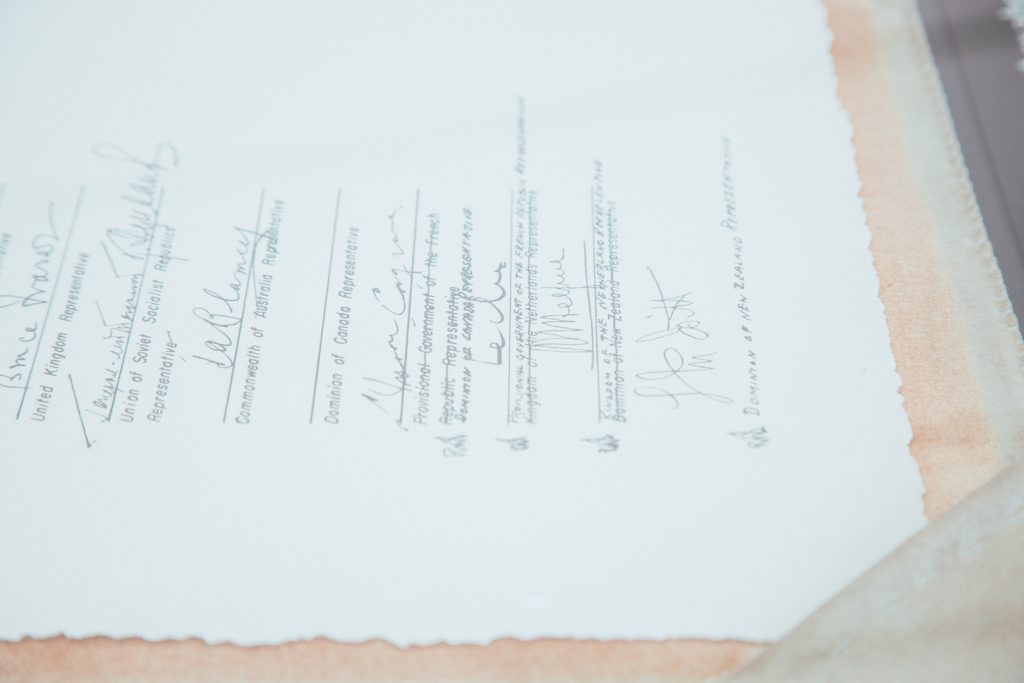 Bruce Fraser
United Kingdom Representative
Union of Soviet Socialist Republics
Representative
Commonwealth of Australia Representative
Dominion of Canada Representative
Provisional Government of the French
Republic Representative
DOMINION OF CANADA REPRESENTATIVE
PROVISIONAL GOVERNMENT OF THE FRENCH REPUBLIC REPRESENTATIVE
Kingdom of the Netherlands Representative
KINGDOM OF THE NETHERLANDS REPRESENTATIVE
Dominion of New Zealand Representative
DOMINION OF NEW ZEALAND REPRESENTATIVE